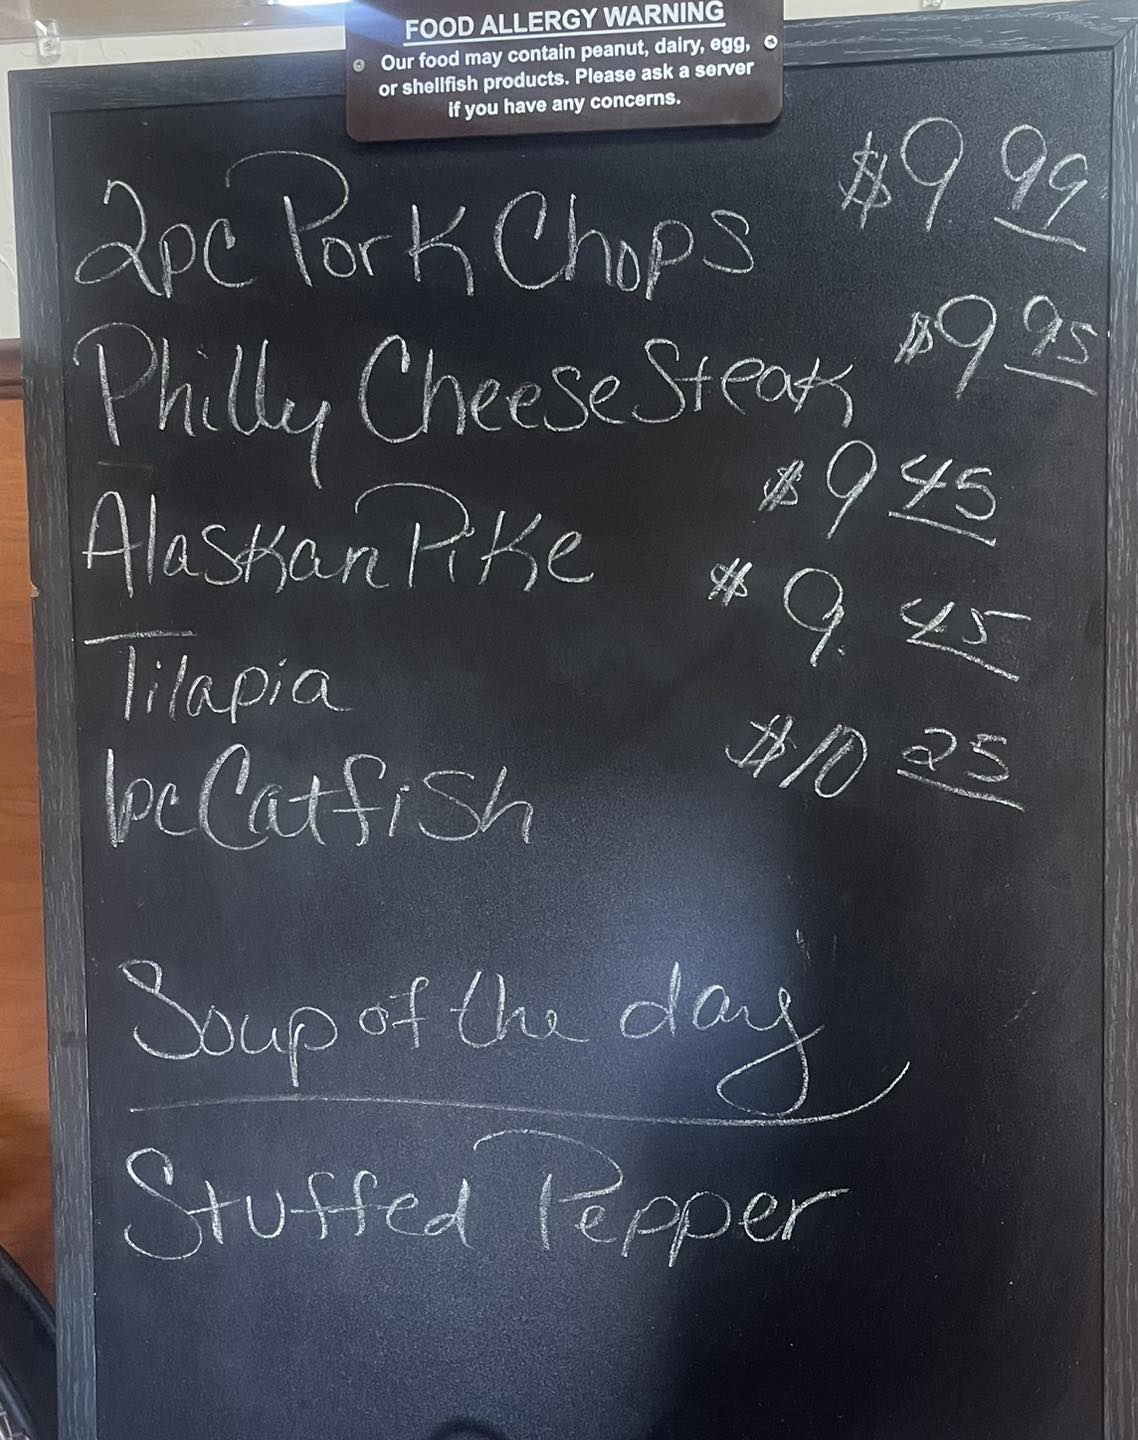 FOOD ALLERGY WARNING
Our food may contain peanut, dairy, egg,
or shellfish products. Please ask a server
if you have any concerns.
2pc Pork Chops $9 99
Philly Cheese Steak $9 95
Alaskan Pike $9 45
Tilapia $9. 45
1pc Catfish $10 25
Soup of the day
Stuffed Pepper